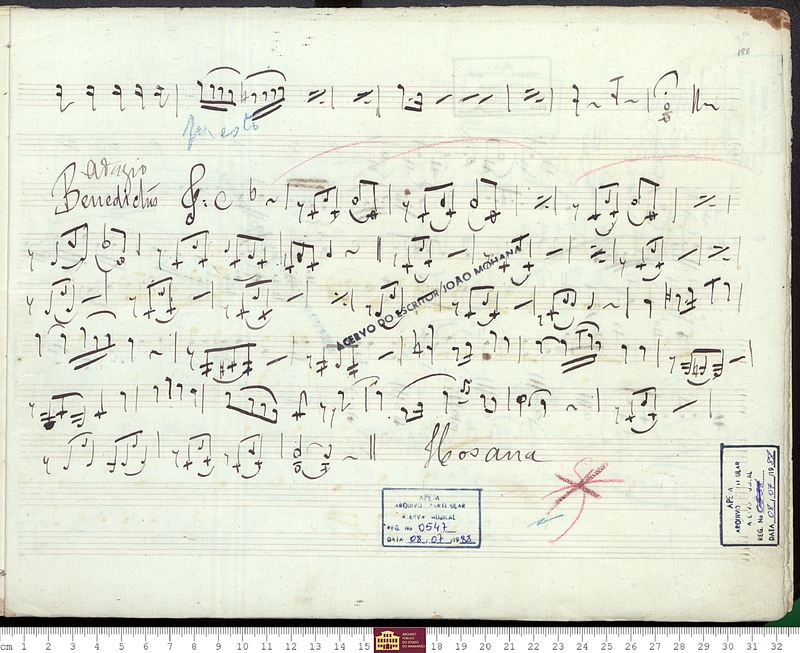 188
Presto
adagio
Benedictus
ACERVO DO ESCRITOR JOÃO MOHANA
Hosana
APESA
ARQUIVO PARTICULAR
ACERVO MUSICAL
REG. No 0547
DATA 08, 07, 1988
ARQUIVO PARTICULAR
REG. No
DATA 08, 07, 1988
cm 1 2 3 4 5 6 7 8 9 10 11 12 13 14 15 18 19 20 21 22 23 24 25 26 27 28 29 30 31 32
ARQUIVO
PÚBLICO
DO ESTADO
DO MARANHÃO